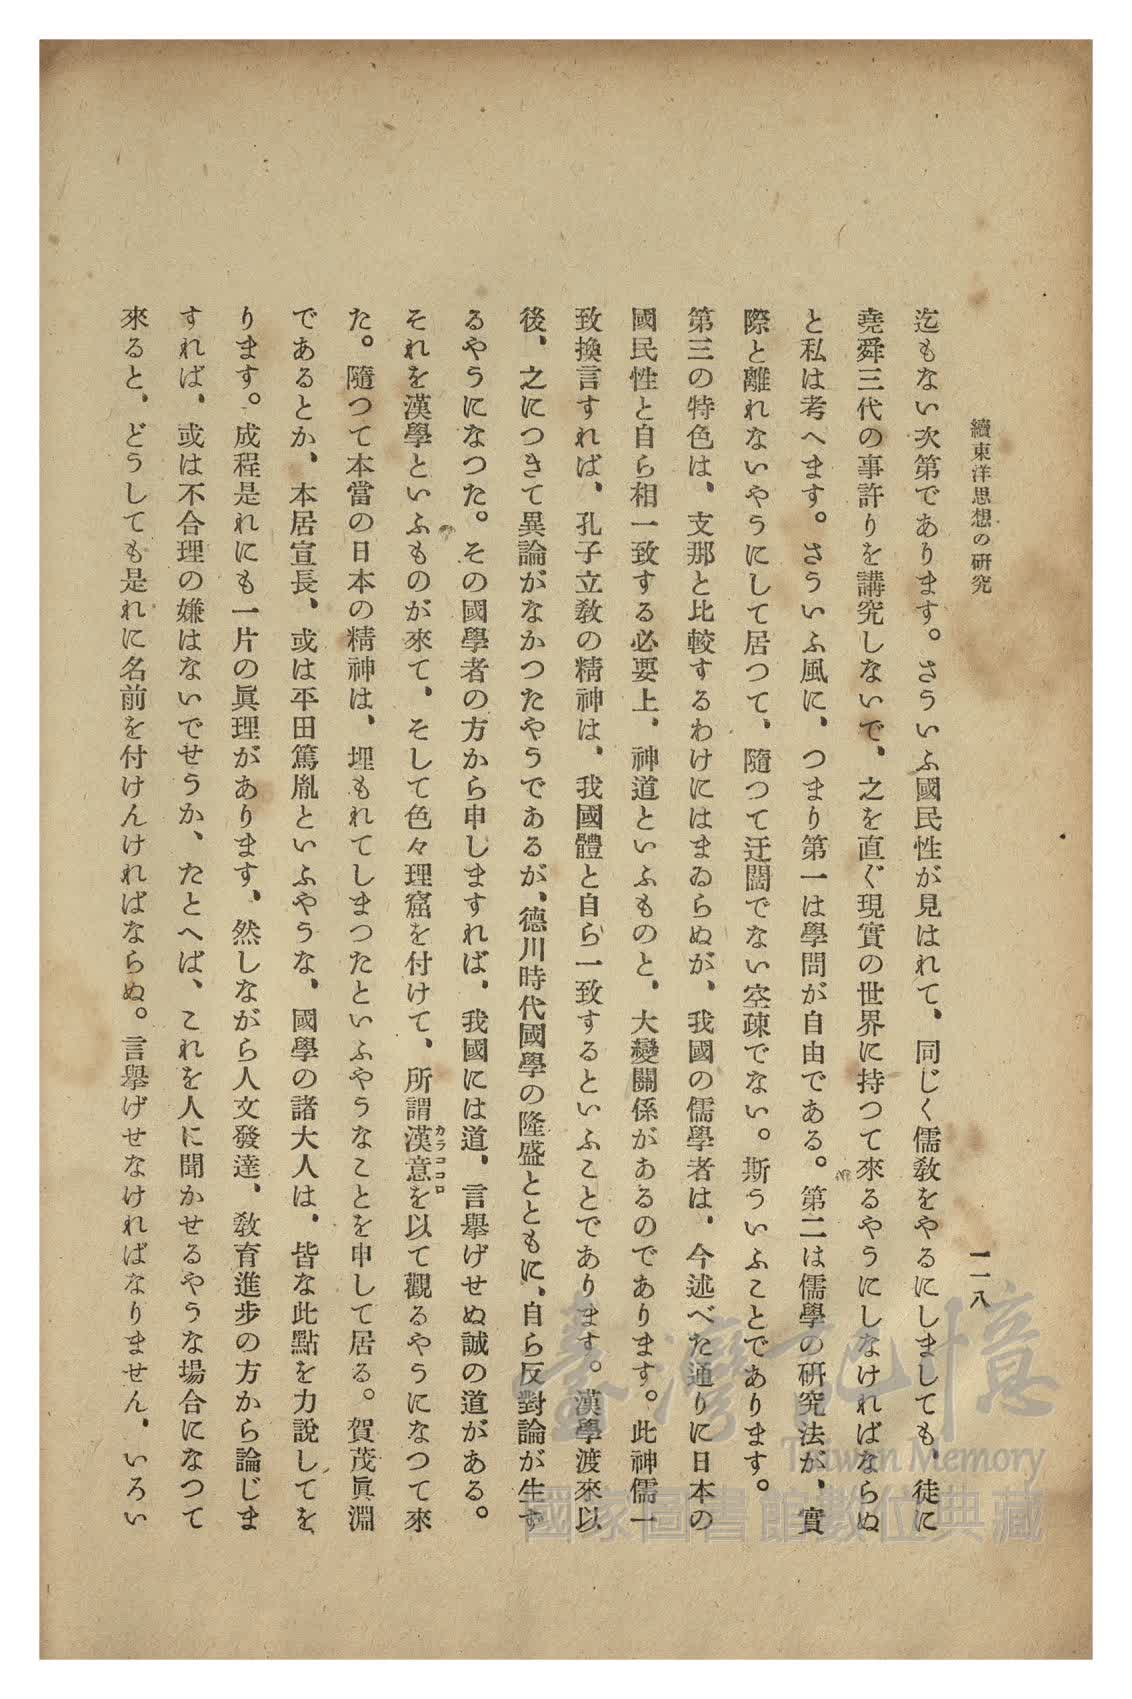 續東洋思想の硏究
一一八
迄もない次第であります。さういふ國民性が見はれて、同じく儒敎をやるにしましても、徒に
堯舜三代の事許りを講究しないで、之を直ぐ現實の世界に持つて來るやうにしなければならぬ
と私は考へます。さういふ風に、つまり第一は學問が自由である。第二は儒學の硏究法が、實
際と離れないやうにして居つて、隨つて迂闊でない空疎でない。斯ういふことであります。
第三の特色は、支那と比較するわけにはまゐらぬが、我國の儒學者は、今述べた通りに日本の
國民性と自ら相一致する必要上、神道といふものと、大變關係があるのであります。此神儒一
致換言すれば、孔子立敎の精神は、我國體と自ら一致するといふことであります。漢學渡來以
後、之につきて異論がなかつたやうであるが、德川時代國學の隆盛とともに、自ら反對論が生す
るやうになつた。その國學者の方から申しますれば、我國には道、言擧げせぬ誠の道がある。
それを漢學といふものが來て、そして色々理窟を付けて、所謂漢意を以て觀るやうになつて來
カラココロ
た。隨つて本當の日本の精神は、埋もれてしまつたといふやうなことを申して居る。賀茂眞淵
であるとか、本居宣長、或は平田篤胤といふやうな、國學の諸大人は、皆な此點を力說してを
ります。成程是れにも一片の眞理があります、然しながら人文發達、敎育進步の方から論じま
すれば、或は不合理の嫌はないでせうか、たとへば、これを人に聞かせるやうな場合になつて
來ると、どうしても是れに名前を付けんければならぬ。言擧げせなければなりません、いろい
臺灣記憶
Taiwan Memory
國家圖書館數位典藏